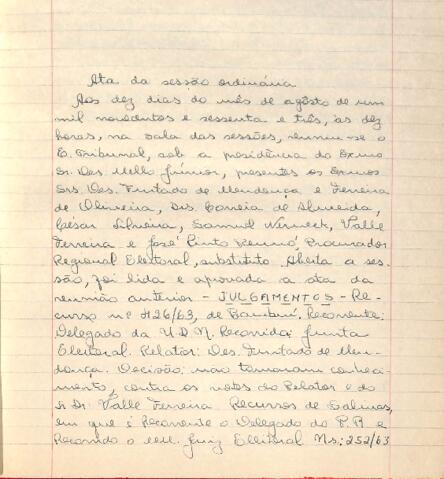 Ata da sessão ordinária
Aos dez dias do mês de agôsto de um
mil novecentos e sessenta e três, às dez
horas, na sala das sessões, reuniu-se o
E. Tribunal, sob a presidência do Exmo
Sr. Des. Mello Júnior, presentes os Exmos
Srs. Des. Furtado de Mendonça e Ferreira
de Oliveira, Drs. Correia de Almeida,
César Silveira, Samuel Werneck, Valle
Ferreira e José Pinto Renno, Procurador
Regional Eleitoral, substituto. Aberta a ses-
são, foi lida e aprovada a ata da
reunião anterior - JULGAMENTOS - Re-
curso nº 426/63, de Bambuí. Recorrente:
Delegado da U.D.N. Recorrida: Junta
Eleitoral. Relator: Des. Furtado de Men-
donça. Decisão: não tomaram conheci-
mento, contra os votos do Relator e do
sr Dr. Valle Ferreira. Recursos de Salinas,
em que é Recorrente o Delegado do P.R e
Recorrido o MM. Juiz Eleitoral Ns: 252/63